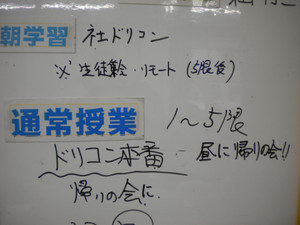 朝学習 社ドリコン
※生徒総・リモート(5限後)
通常授業 1~5限
ドリコン本番 - 昼に帰りの会!!
帰りの会に